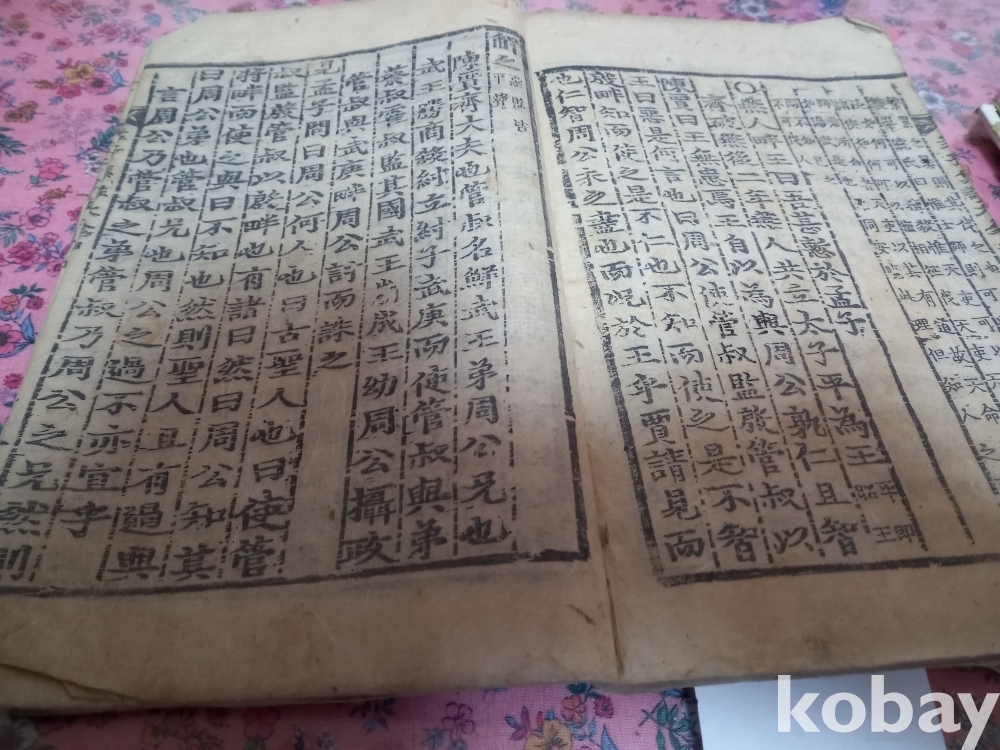 ○燕人畔王曰吾甚慙於孟子
齊破燕後二年燕人共立太子平為王平即昭王
陳賈曰王無患焉王自以為與周公孰仁且智
王曰惡是何言也曰周公使管叔監殷管叔以
殷畔知而使之是不仁也不知而使之是不智
也仁智周公未之盡也而况於王乎賈請見而
解之惡監皆平聲
陳賈齊大夫也管叔名鮮武王弟周公兄也
武王勝商殺紂立紂子武庚而使管叔與弟
蔡叔霍叔監其國武王崩成王幼周公攝政
管叔與武庚畔周公討而誅之
見孟子問曰周公何人也曰古聖人也曰使管
叔監殷管叔以殷畔也有諸曰然曰周公知其
將畔而使之與曰不知也然則聖人且有過與
曰周公弟也管叔兄也周公之過不亦宜乎
言周公乃管叔之弟管叔乃周公之兄然則
kobay